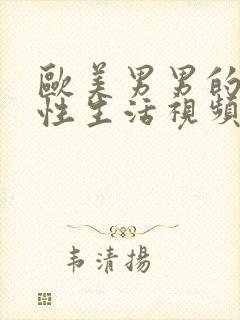 歐美男男的
性生活視頻
韦清揚